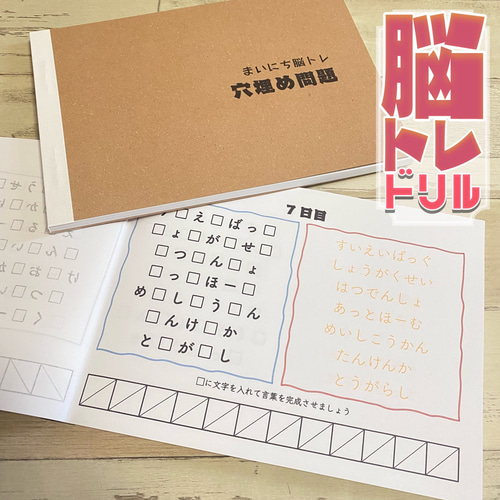 まいにち脳トレ
穴埋め問題
脳
トレ
ドリル
7日目
□え□ばっ□
□ょ□が□せ□
□つ□ん□ょ
□っ□ほー□
め□し□う□ん
□んけ□か
と□が□し
すいえいばっぐ
しょうがくせい
はつでんしょ
あっとほーむ
めいしこうかん
たんけんか
とうがらし
□に文字を入れて言葉を完成させましょう